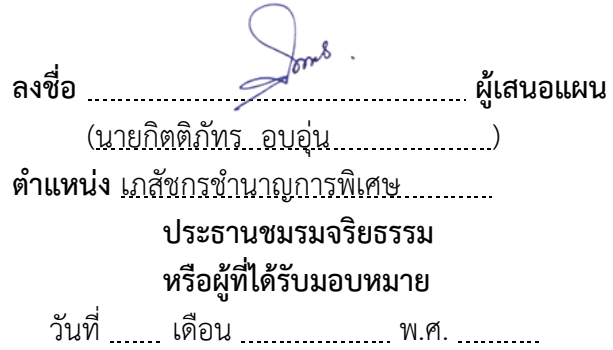 ลงชื่อ ................................................ ผู้เสนอแผน
(นายกิตติภัทร อบอุ่น......................)
ตำแหน่ง เภสัชกรชำนาญการพิเศษ................
ประธานชมรมจริยธรรม
หรือผู้ที่ได้รับมอบหมาย
วันที่ ...... เดือน .................... พ.ศ. ...........